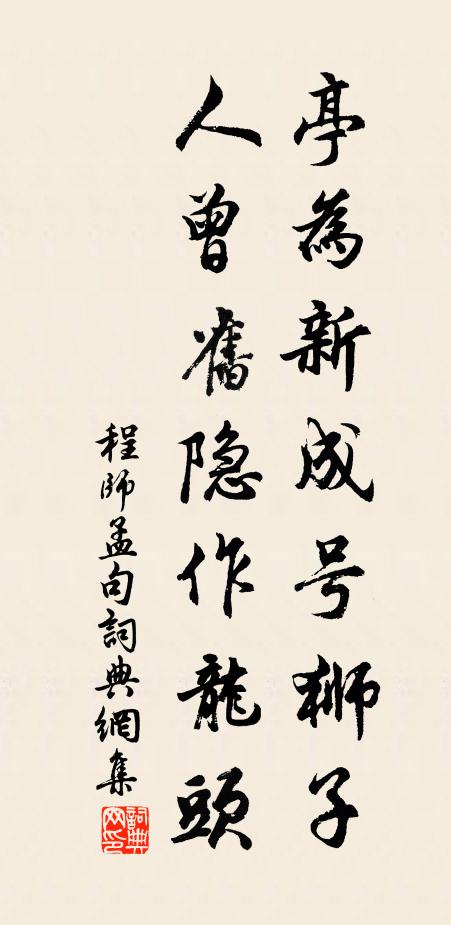 亭為新成号獅子
人曾舊隐作龍頭
程師孟句詞典網集
詞典网印